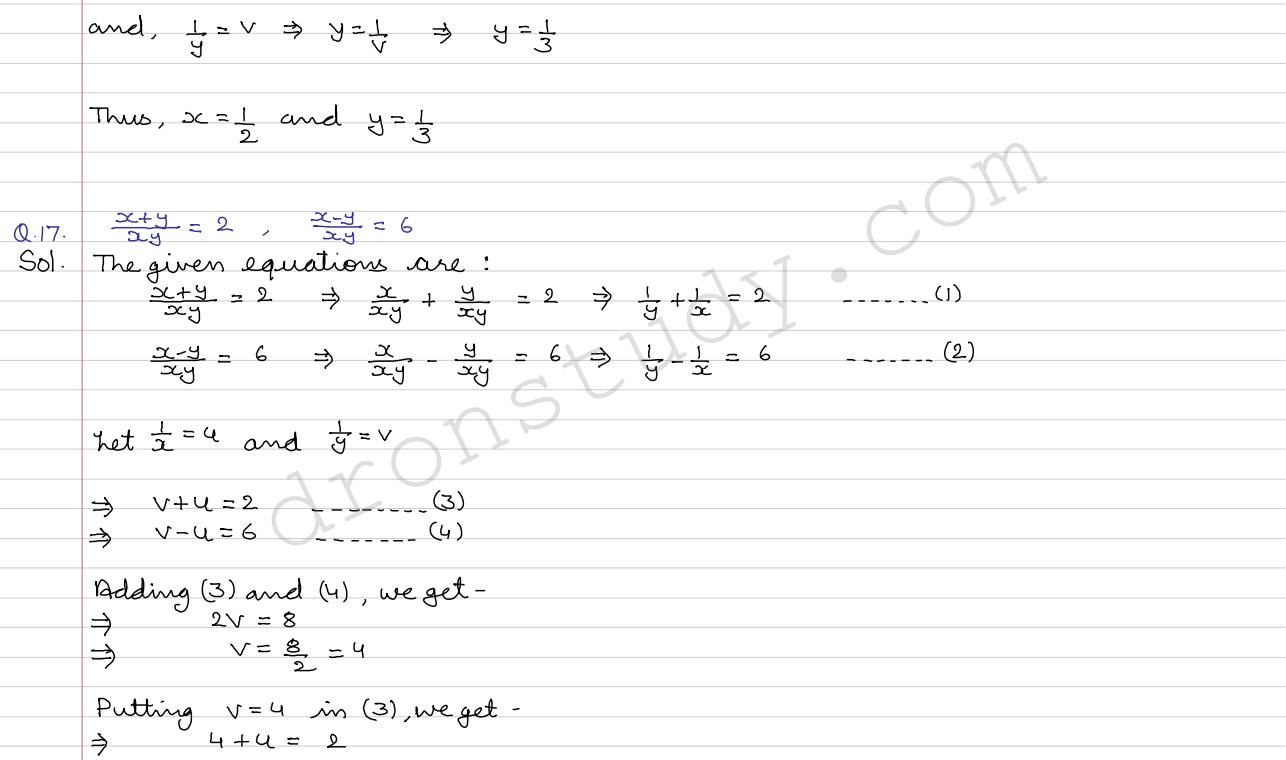 and, 1/y = v ⇒ y = 1/v ⇒ y = 1/3
Thus, x = 1/2 and y = 1/3
Q.17. (x+y)/xy = 2 , (x-y)/xy = 6
Sol. The given equations are :
(x+y)/xy = 2 ⇒ x/xy + y/xy = 2 ⇒ 1/y + 1/x = 2 -------(1)
(x-y)/xy = 6 ⇒ x/xy - y/xy = 6 ⇒ 1/y - 1/x = 6 -------(2)
Let 1/x = u and 1/y = v
⇒ v+u = 2 ---------(3)
⇒ v-u = 6 --------(4)
Adding (3) and (4), we get -
⇒ 2v = 8
⇒ v = 8/2 = 4
Putting v = 4 in (3), we get -
⇒ 4 + u = 2
dronstudy.com